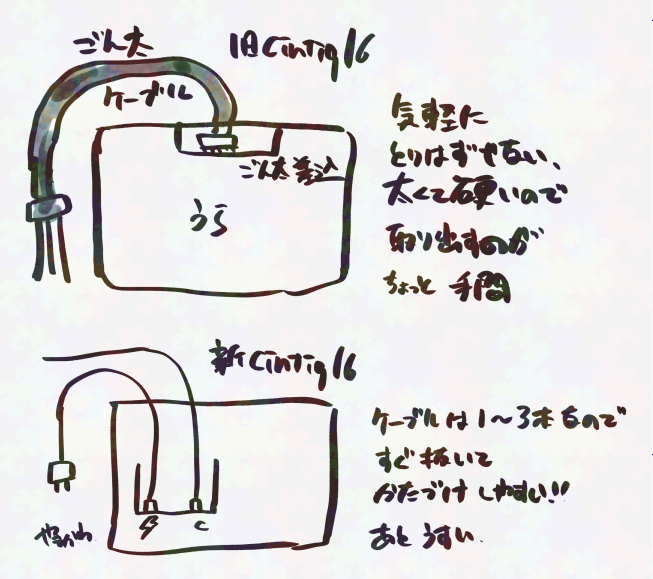 ごん太
ケーブル
旧Cintiq16
ごん太差込
うら
気軽に
とりはずせない、
太くて硬いので
取り出すのが
ちょっと 手間
新Cintiq16
ケーブルは1〜3本なので
すぐ抜いて
かたづけしやすい!!
あと うすい.
C